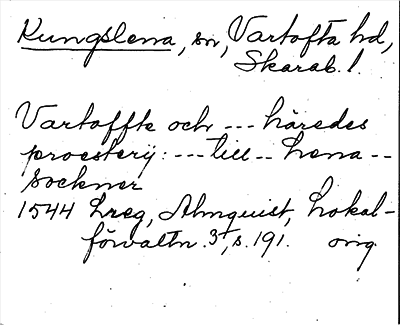 Kungslena, sn, Vartofta hd,
Skarab. l.
Vartoffte och --- häredes
proesterij: --- till -- Lena --
Sockner
1544 Lreg, Almquist, Lokal-
förvaltn. 3, s. 191. orig.